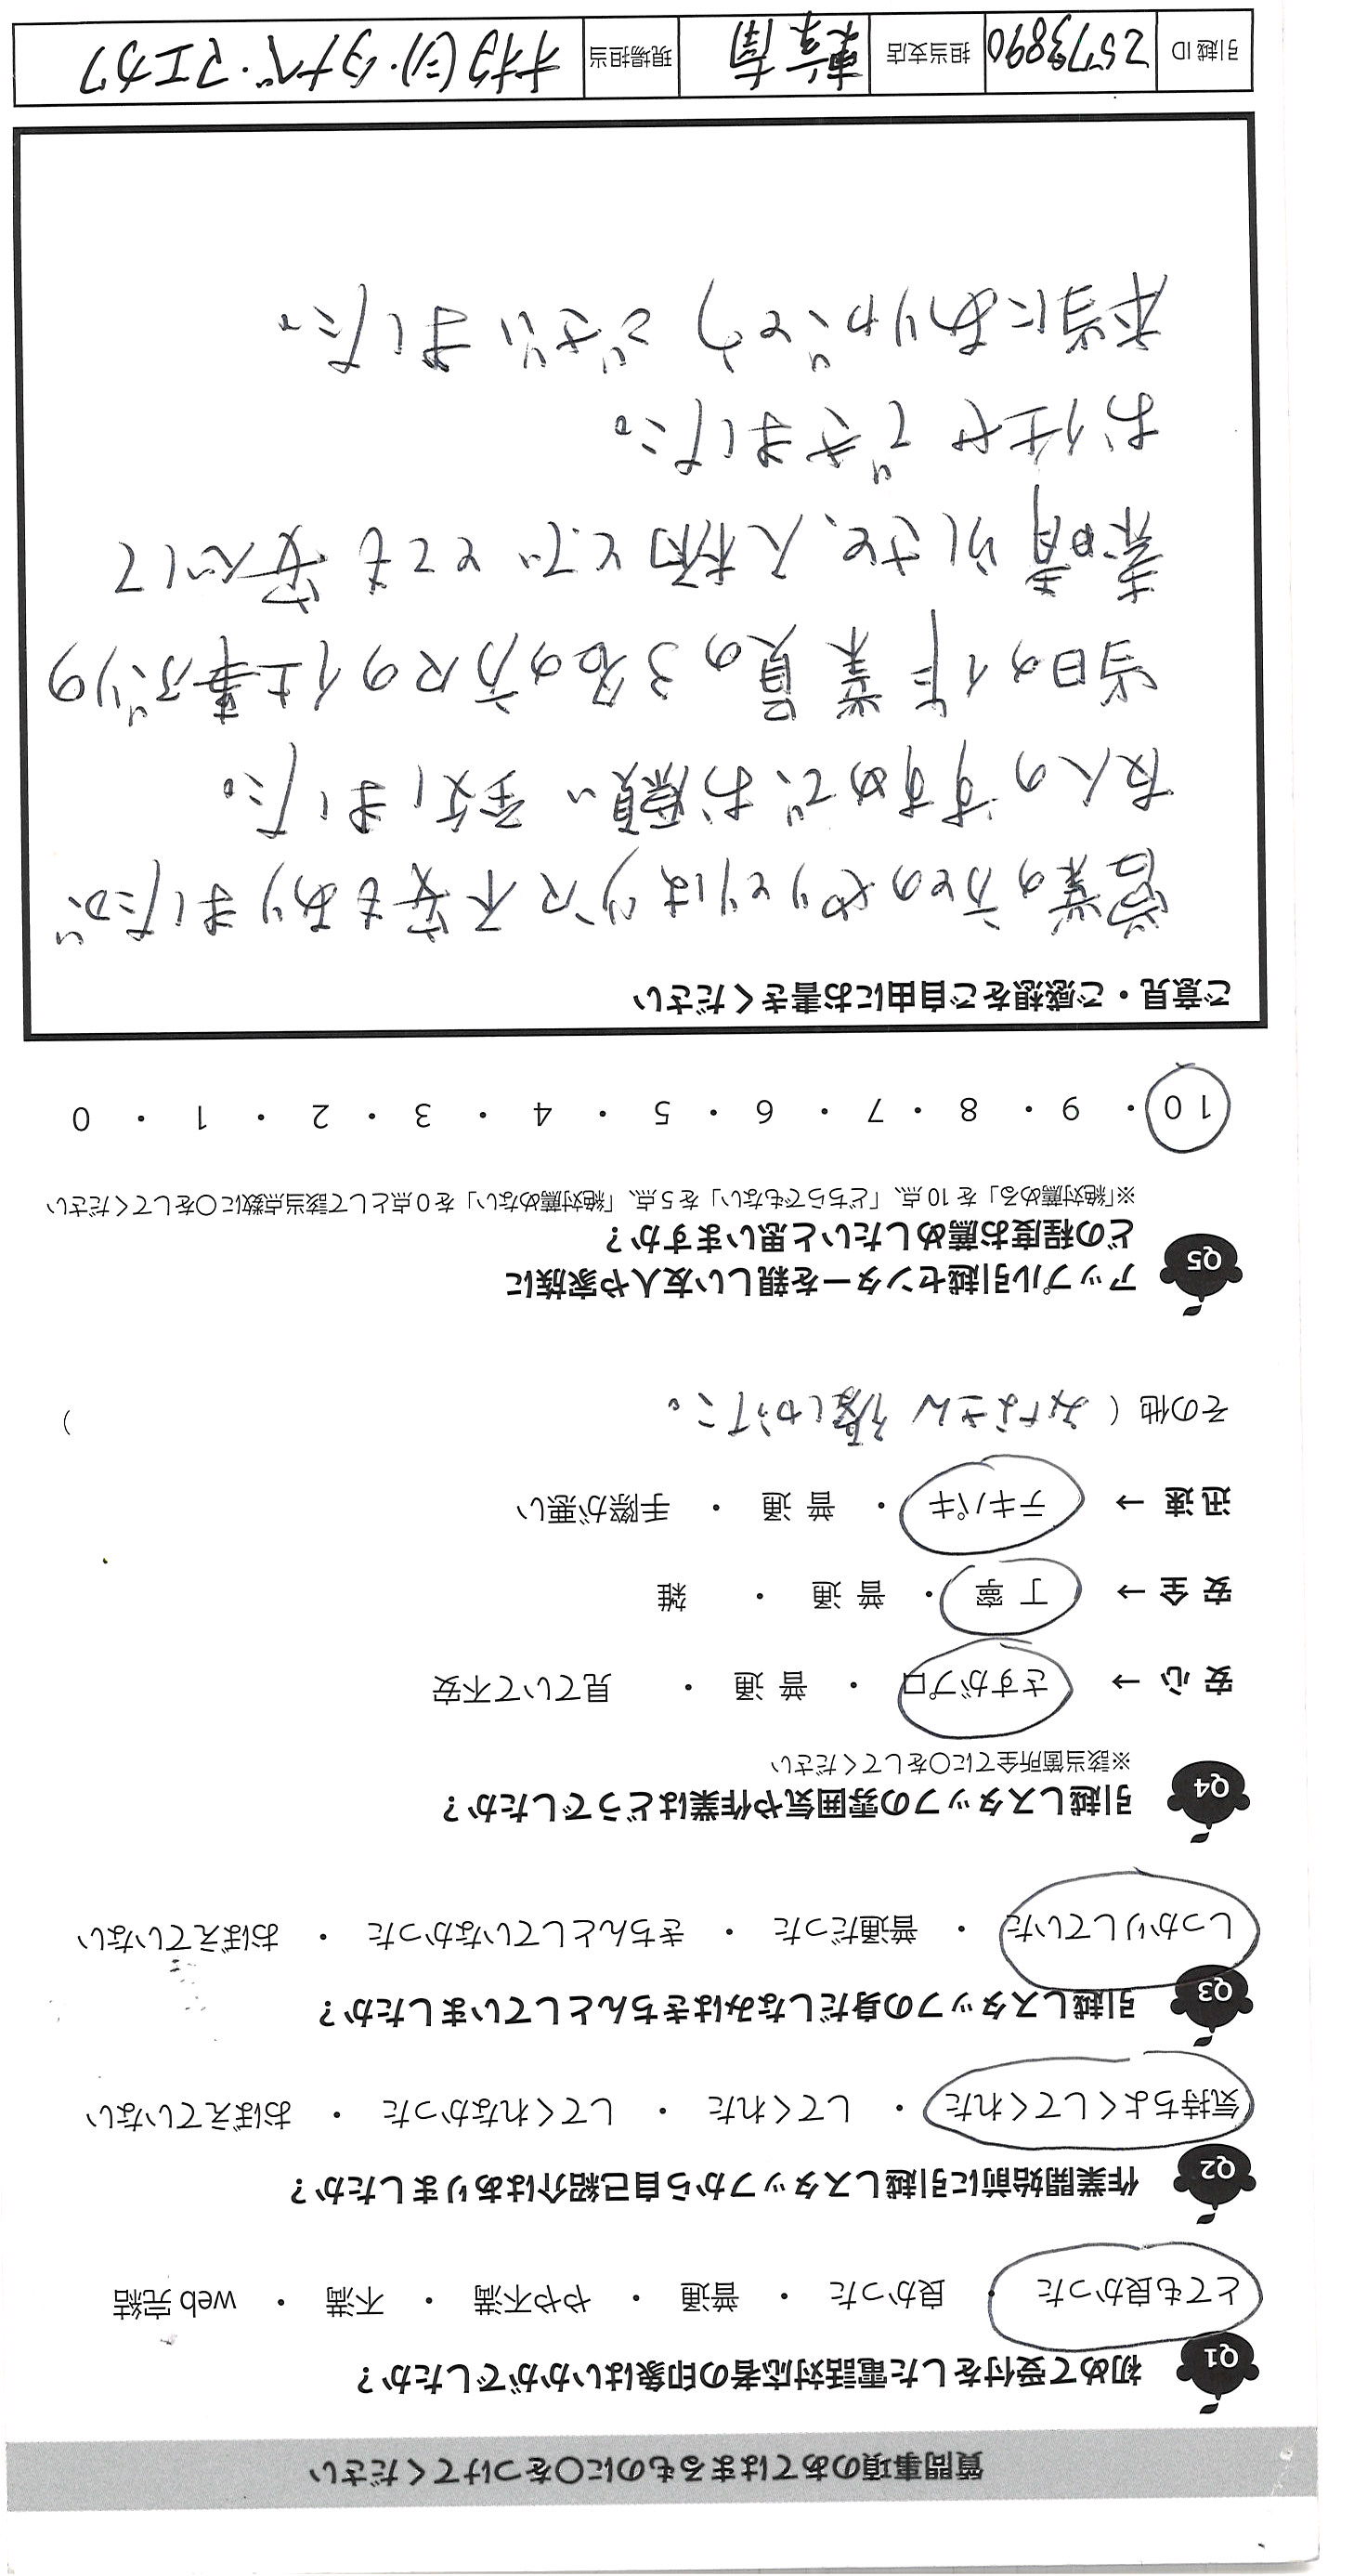 質問事項のあてはまるものに○をつけてください
Q1 初めて受付をした電話対応者の印象はいかがでしたか？
とても良かった ・ 良かった ・ 普通 ・ やや不満 ・ 不満 ・ web完結
Q2 作業開始前に引越しスタッフから自己紹介はありましたか？
気持ちよくしてくれた ・ してくれた ・ してくれなかった ・ おぼえていない
Q3 引越しスタッフの身だしなみはきちんとしていましたか？
しっかりしていた ・ 普通だった ・ きちんとしていなかった ・ おぼえていない
Q4 引越しスタッフの雰囲気や作業はどうでしたか？
※該当箇所全てに○をしてください
安心 → さすがプロ ・ 普通 ・ 見ていて不安
安全 → 丁寧 ・ 普通 ・ 雑
迅速 → テキパキ ・ 普通 ・ 手際が悪い
その他（ みなさん優しかった。 ）
Q5 アップル引越センターを親しい友人や家族に
どの程度お薦めしたいと思いますか？
※「絶対薦める」を10点、「どちらでもない」を5点、「絶対薦めない」を0点として該当点数に○をしてください
10 ・ 9 ・ 8 ・ 7 ・ 6 ・ 5 ・ 4 ・ 3 ・ 2 ・ 1 ・ 0
ご意見・ご感想をご自由にお書きください
営業の方とのやりとりは少々不安もありましたが
友人のすすめで、お願い致しました。
当日の作業員の3名の方々の仕事ぶりの
素晴らしさと、人柄とで とても安心して
お任せできました。
本当にありがとうございました。
引越ID 2573890 担当支店 現場担当 オオタ(ニ)・タナベ・マエカワ